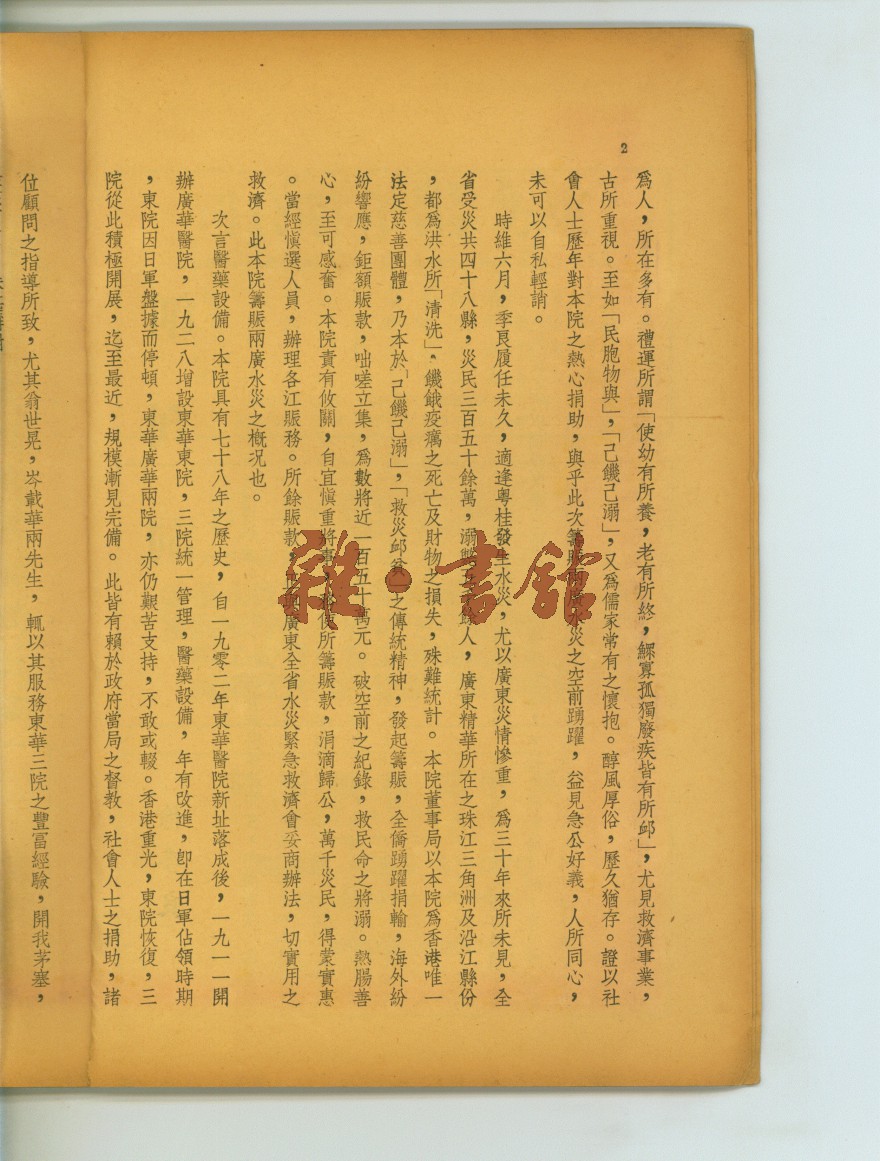 2
為人，所在多有。禮運所謂「使幼有所養，老有所終，鰥寡孤獨廢疾皆有所卹」，尤見救濟事業，
古所重視。至如「民胞物與」，「己饑己溺」，又為儒家常有之懷抱。醇風厚俗，歷久猶存。證以社
會人士歷年對本院之熱心捐助，與乎此次籌賑兩廣水災之空前踴躍，益見急公好義，人所同心，
未可以自私輕誚。
時維六月，季良履任未久，適逢粵桂發生水災，尤以廣東災情慘重，為三十年來所未見，全
省受災共四十八縣，災民三百五十餘萬，溺斃 餘人，廣東精華所在之珠江三角洲及沿江縣份
，都為洪水所「清洗」．饑餓疫癘之死亡及財物之損失，殊難統計。本院董事局以本院為香港唯一
法定慈善團體，乃本於「己饑己溺」，「救災卹貧」之傳統精神，發起籌賑，全僑踴躍捐輸，海外紛
紛響應，鉅額賑款，咄嗟立集，為數將近一百五十萬元。破空前之紀錄，救民命之將溺。熱腸善
心，至可感奮。本院責有攸關，自宜慎重將事，務使所籌賑款，涓滴歸公，萬千災民，得蒙實惠
。當經慎選人員，辦理各江賑務。所餘賑款， 與廣東全省水災緊急救濟會妥商辦法，切實用之
救濟。此本院籌賑兩廣水災之概况也。
次言醫藥設備。本院具有七十八年之歷史，自一九零二年東華醫院新址落成後，一九一一開
辦廣華醫院，一九二八增設東華東院，三院統一管理，醫藥設備，年有改進，卽在日軍佔領時期
，東院因日軍盤據而停頓，東華廣華兩院，亦仍艱苦支持，不敢或輟。香港重光，東院恢復，三
院從此積極開展，迄至最近，規模漸見完備。此皆有賴於政府當局之督教，社會人士之捐助，諸
位顧問之指導所致，尤其翁世晃，岑載華兩先生，輒以其服務東華三院之豐富經驗，開我茅塞，
雜·書館